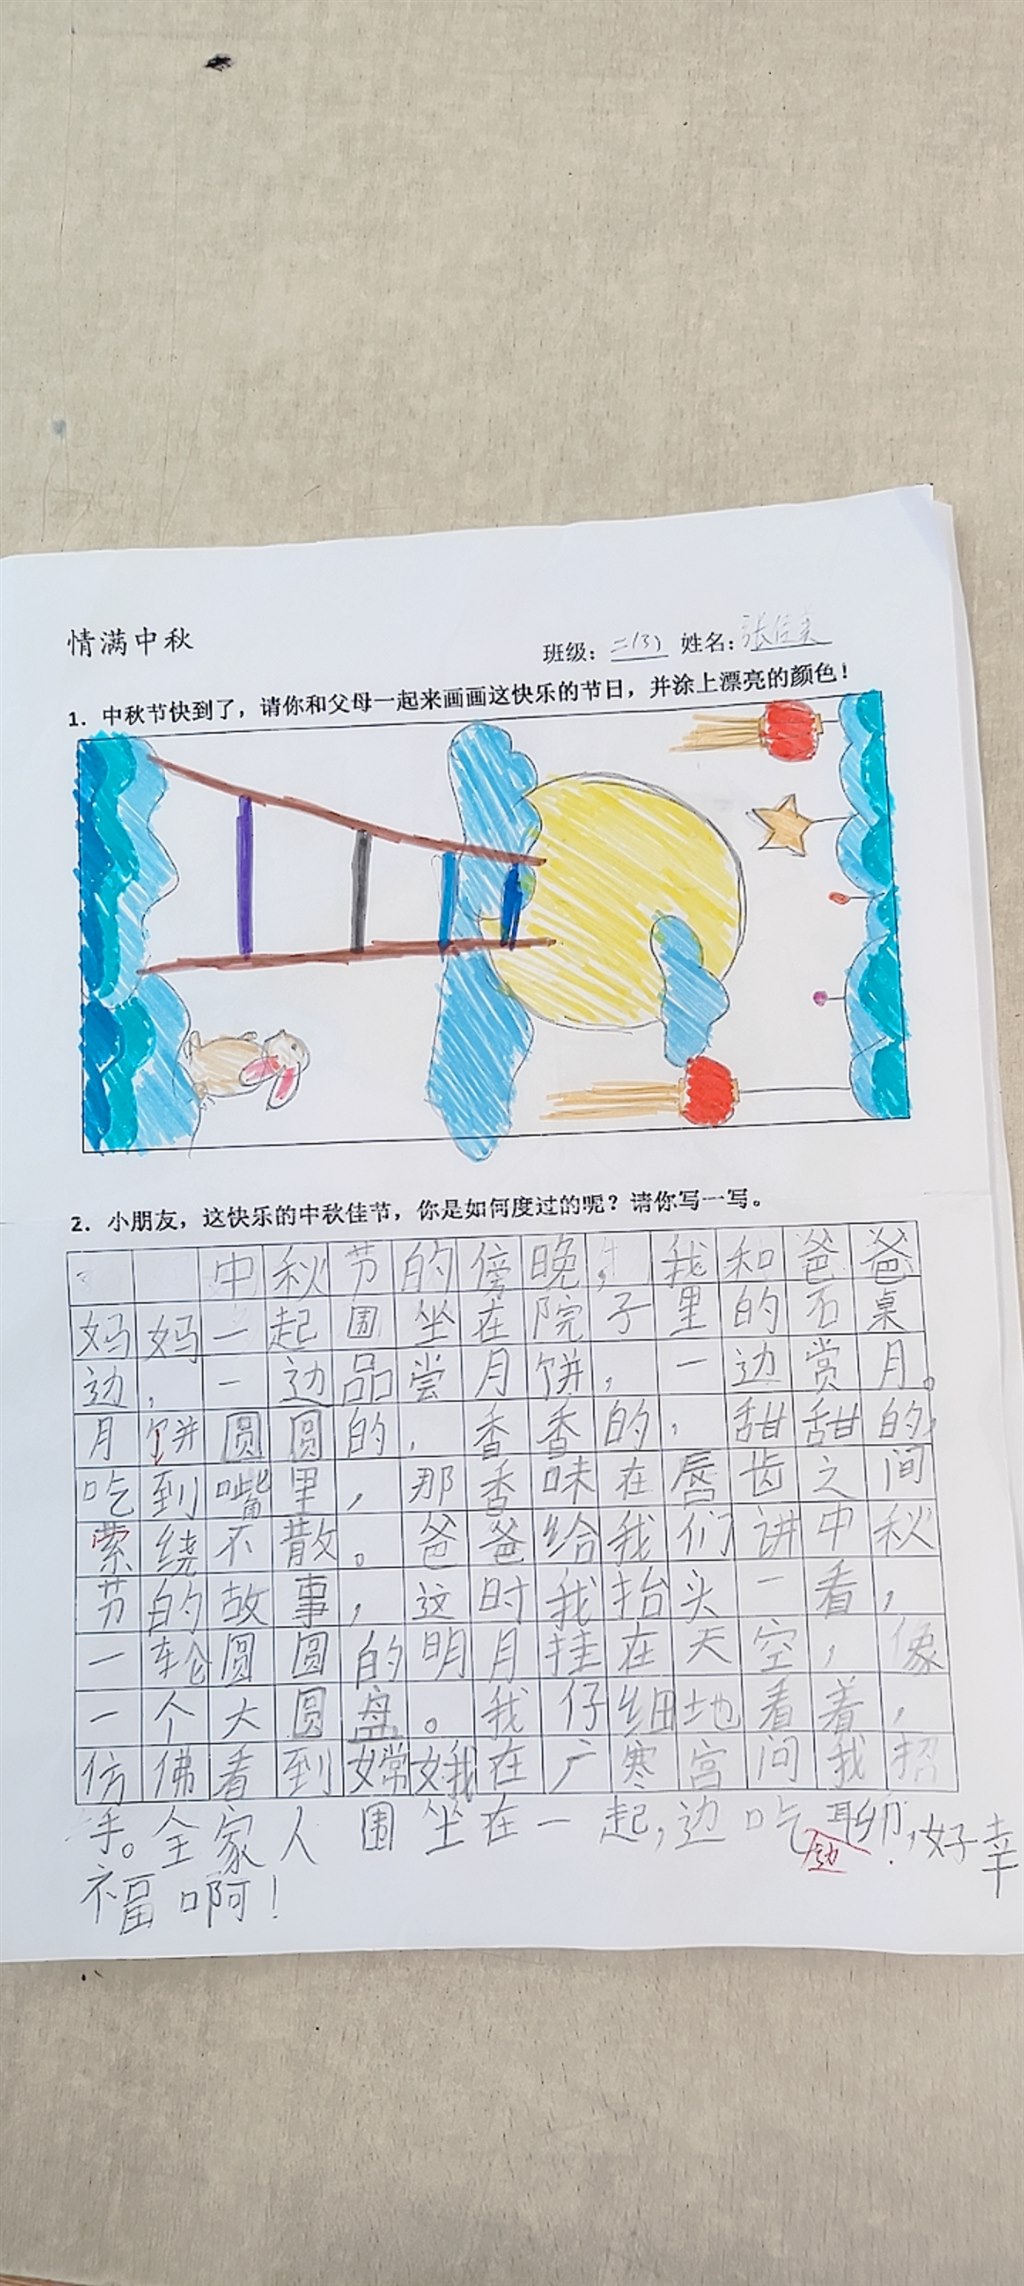 情满中秋
班级：二(3) 姓名：张
1. 中秋节快到了，请你和父母一起来画画这快乐的节日，并涂上漂亮的颜色！
2. 小朋友，这快乐的中秋佳节，你是如何度过的呢？请你写一写。
中秋节的傍晚，我和爸爸
妈妈一起围坐在院子里的石桌
边，一边品尝月饼，一边赏月。
月饼圆圆的，香香的，甜甜的，
吃到嘴里，那香味在唇齿之间
萦绕不散。爸爸给我们讲中秋
节的故事，这时我抬头一看，
一轮圆圆的明月挂在天空，像
一个大圆盘。我仔细地看着，
仿佛看到嫦娥在广寒宫问我招
手。全家人围坐在一起，边吃边聊，好幸
福啊！